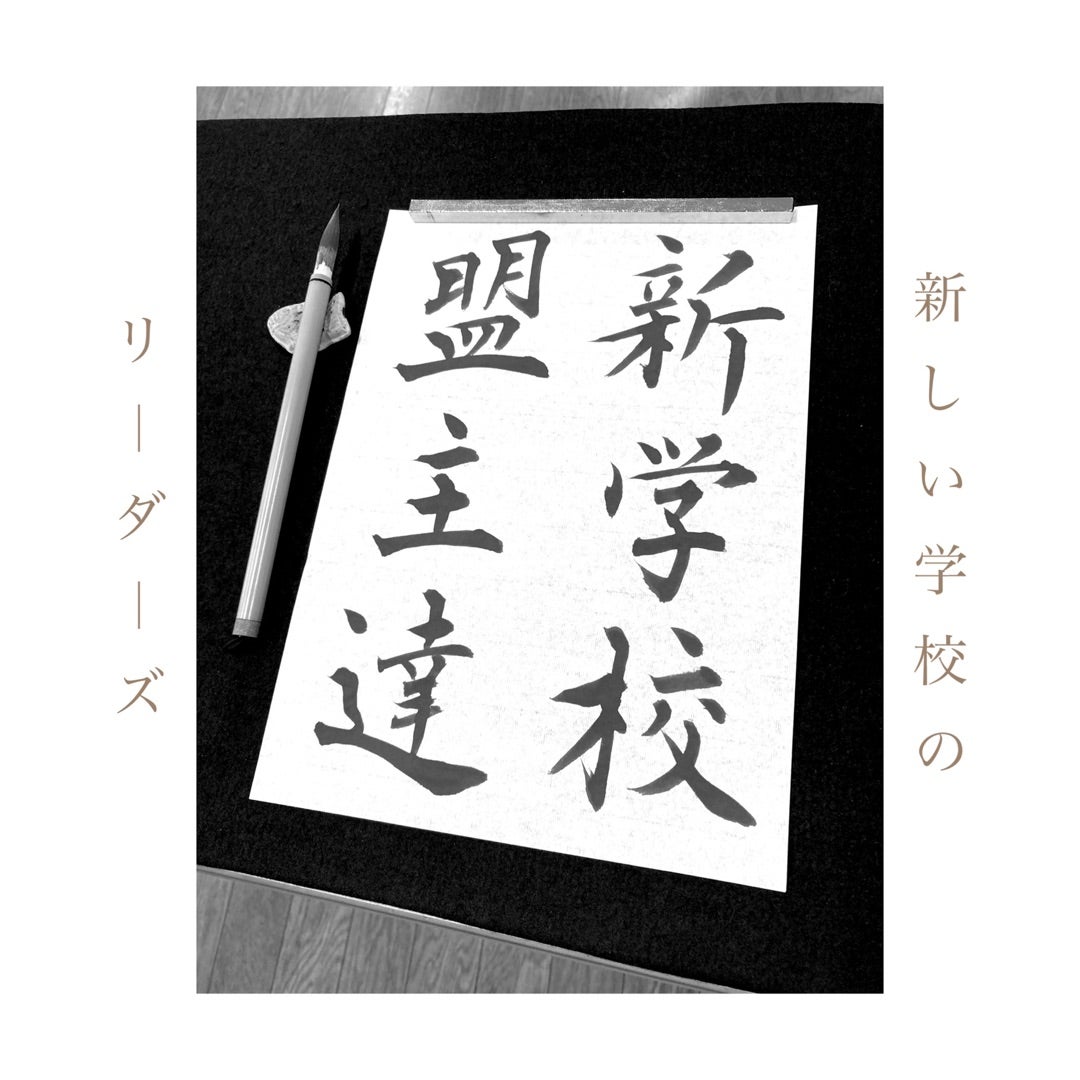 新しい学校の
新学校
盟主達
リーダーズ